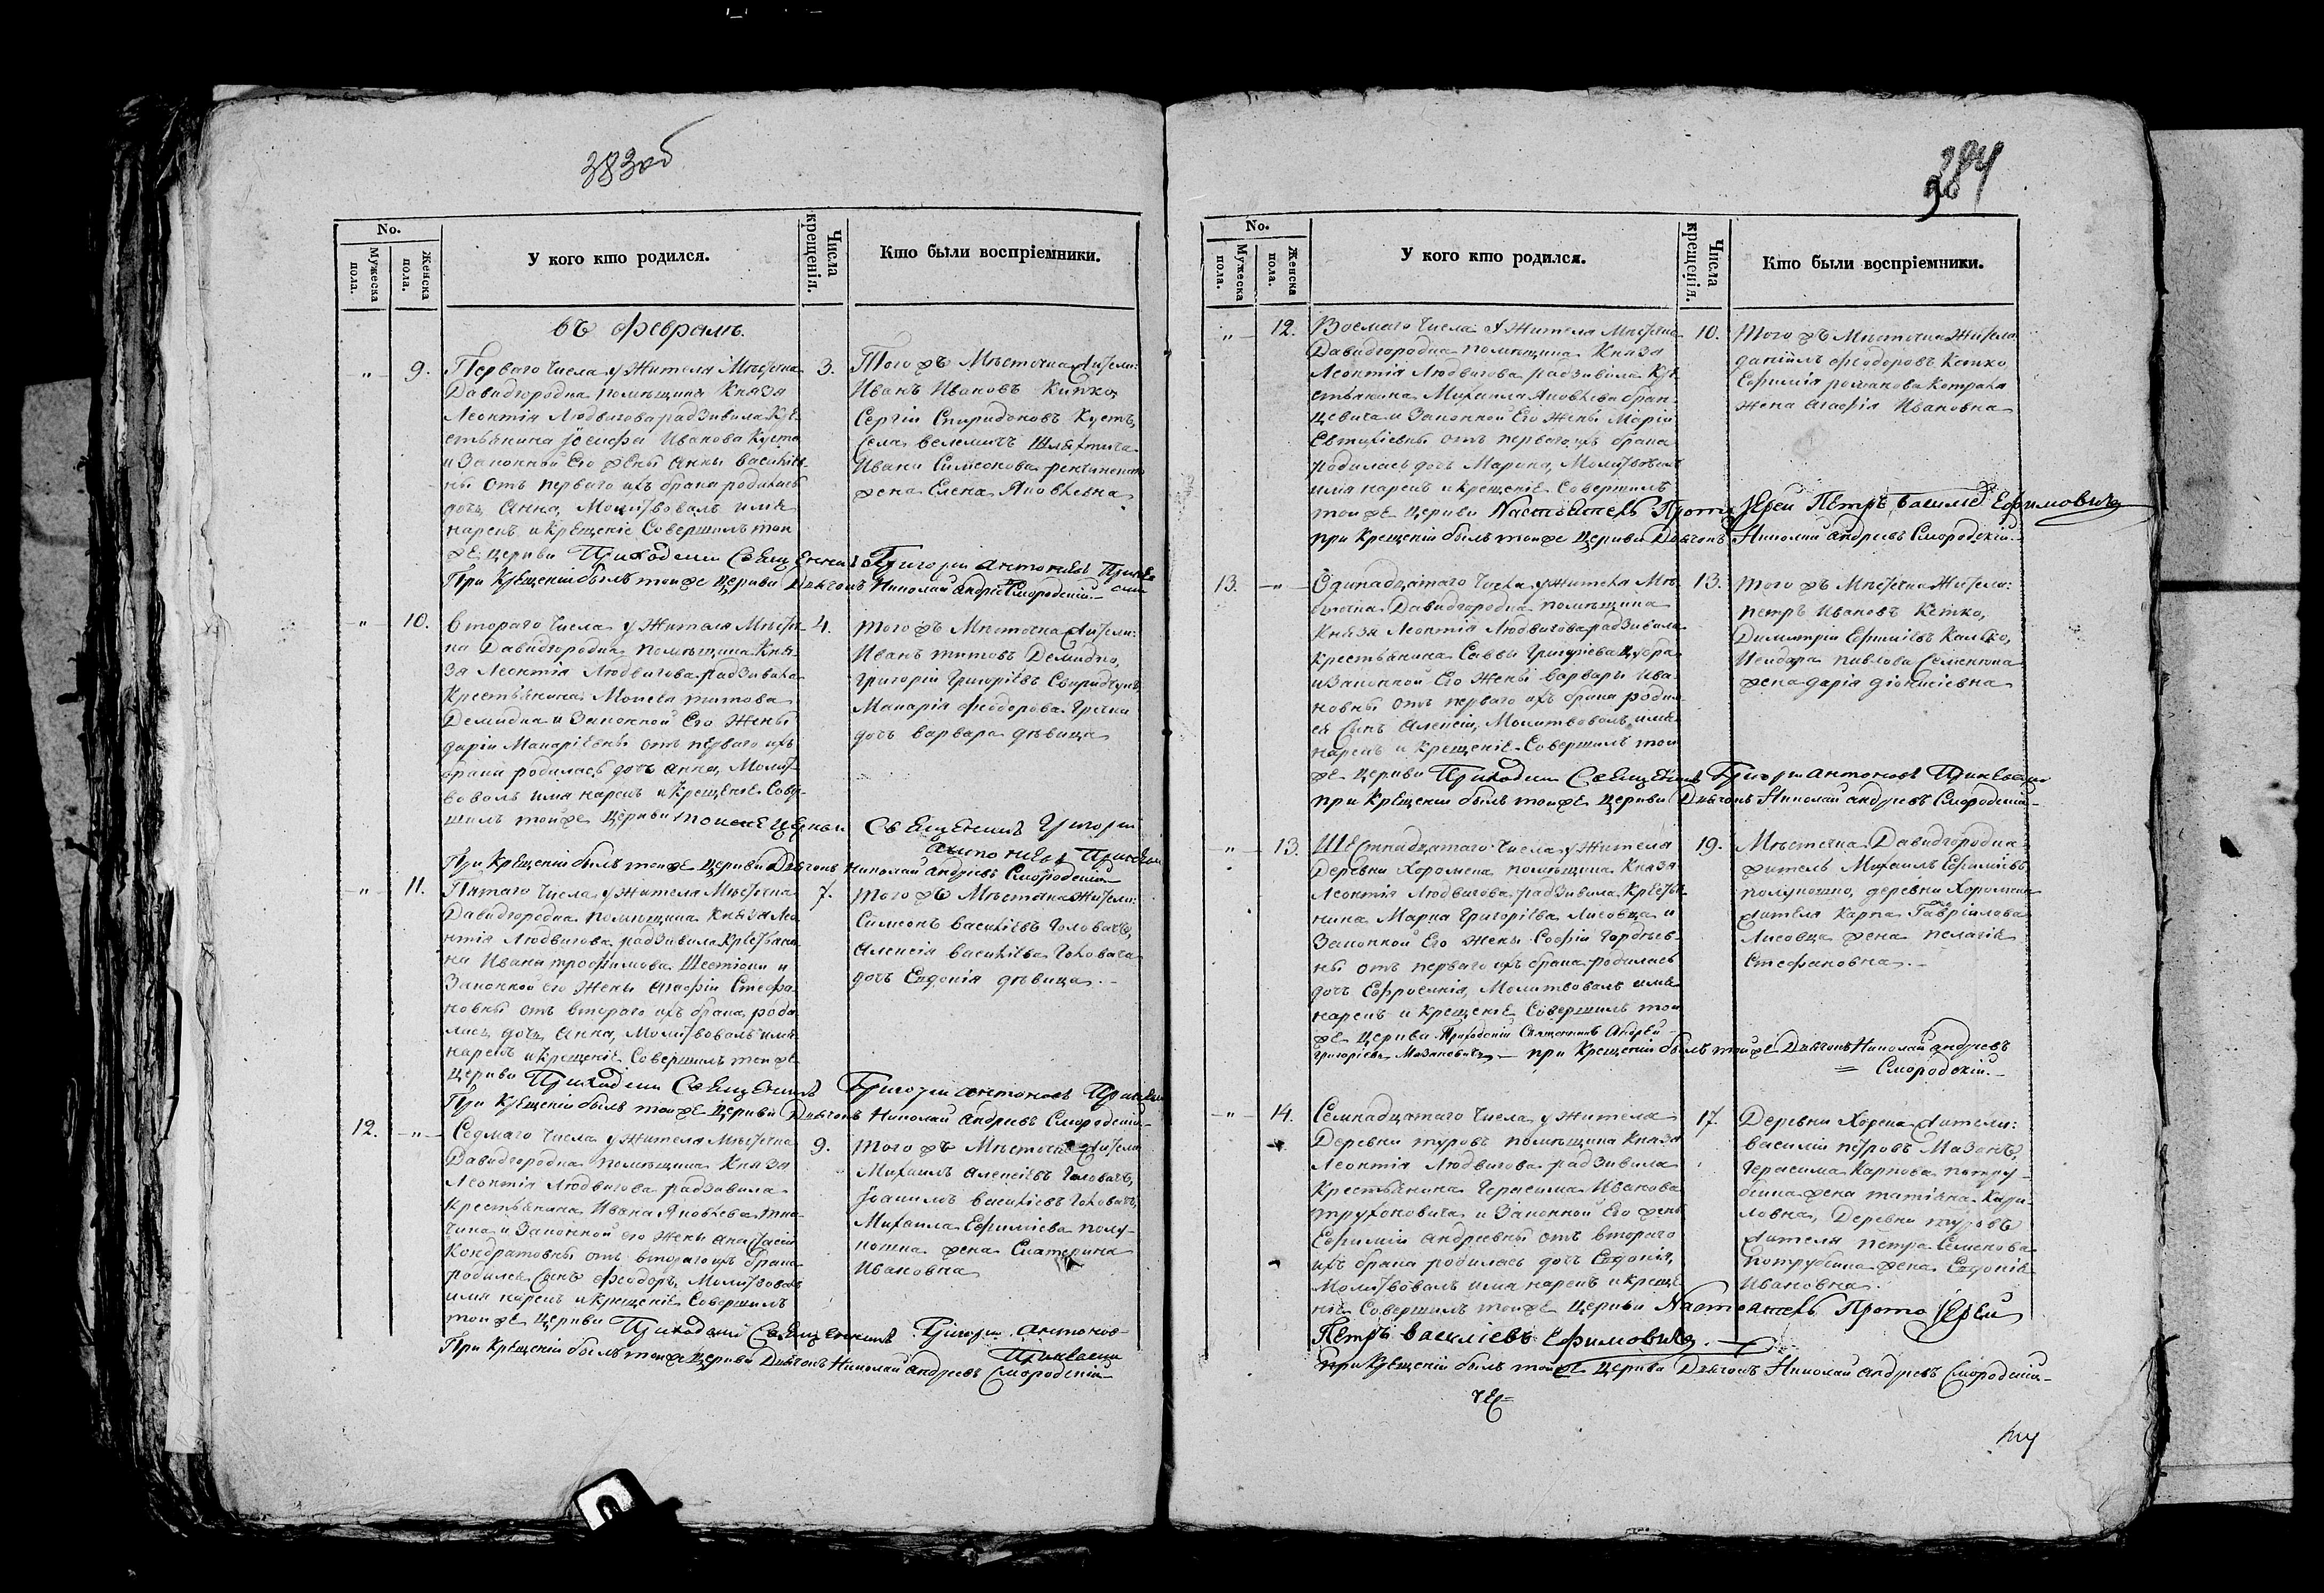 383 об
No.
Мужеска пола.
Женска пола.
У кого кто родился.
Числа крещенія.
Кто были воспріемники.
въ февралѣ.
„ 9.
Перваго числа у жителя Мѣстечка
Давидгородка помѣщика Князя
Леонтія Людвигова радзивила Кре
стьянина Іосифа Иванова Куста
и Законной Его жены Анны василіев
ны отъ перваго ихъ брака родилась
дочь Анна, Молитвовалъ имя
нарекъ и крещеніе Совершилъ тои
же церкви Приходскии Священникъ Григории Антониевъ
При Крещеніи былъ тои же Церкви Дьячокъ Николай Андреевъ Смородскій
3.
Того жъ Мѣстечка жители:
Иванъ Ивановъ Китко,
Сергій Спиридоновъ Кустъ,
Села велемичъ Шляхтича
Ивана Симеонова
жена Елена Яковлевна
„ 10.
втораго числа у жителя Мѣстеч
ка Давидгородка помѣщика Кня
зя Леонтія Людвигова радзивила
Крестьянина Моисея титова
Демидка и Законной Его Жены
даріи Макаріевны отъ перваго ихъ
брака родилась дочь анна, Молит
вовалъ имя нарекъ и Крещеніе Совер
шилъ тои же Церкви тои же Церкви Священникъ Григории
Антониевъ
При Крещеніи былъ тои же Церкви Дьячокъ Николай Андреевъ Смородскій
4.
того жъ Мѣстечка жители:
Иванъ титовъ Демидко,
Григорій Григоріевъ
Макарія Феодорова Гречки
дочь варвара дѣвица
„ 11.
Пятаго числа у жителя Мѣстечка
Давидгородка помѣщика Князя Лео
нтія Людвигова радзивила Крестьяни
на Ивана трофимова Шестюки и
Законной его жены Агафіи Стефа
новны отъ втораго ихъ брака роди
лась дочь Анна, Молитвовалъ имя
нарекъ и крещеніе Совершилъ тои же
Церкви Приходскии Священникъ Григории Антоновъ
При Крещеніи былъ тои же Церкви Дьячокъ Николай Андреевъ Смородскій
7.
того жъ Мѣстечка жители:
Симеонъ василіевъ Головачъ,
Алексія василіева Головача
дочь Евдокія дѣвица.
12. „
Седмаго числа у жителя Мѣстечка
Давидгородка помѣщика Князя
Леонтія Людвигова радзивила
Крестьянина Ивана Яковлева
и Законной его жены анастасіи
Кондратовны отъ втораго ихъ брака
родился Сынъ Феодоръ, Молитвовалъ
имя нарекъ и крещеніе Совершилъ
тои же Церкви Приходскій Священникъ Григории Антонов
При Крещеніи былъ тои же Церкви Дьячокъ Николай Андреевъ Смородскій
9.
того жъ Мѣстечка жители
Михаилъ Алексіевъ Головачъ,
Іоакимъ василіевъ Головачъ,
Михаила Ефиміева полу
кошка жена Екатерина
Ивановна
384
No.
Мужеска пола.
Женска пола.
У кого кто родился.
Числа крещенія.
Кто были воспріемники.
„ 12.
Восмаго числа у Жителя Мѣстечка
Давидгородка помѣщика Князя
Леонтія Людвигова радзивила Кре
стьянина Михаила Яковлева бран
цевича и Законной Его Жены Маріи
Евтихіевны отъ перваго ихъ брака
родилась дочь Марина, Молитвовалъ
имя нарекъ и крещеніе Совершилъ
тои же Церкви Настоятель Прото Іерей Петръ василіев Ефимовичъ
при Крещеніи былъ тои же Церкви Дьячокъ Николай андреевъ Смородскій
10.
того жъ Мѣстечка Жители
даніилъ феодоровъ Китко
Ефимія романова
жена Агафія Ивановна
13. „
Одинадцатаго числа у жителя Мѣ
стечка Давидгородка помѣщика
Князя Леонтія Людвигова радзивила
Крестьянина Саввы Григоріева
и Законной Его Жены варвары Ива
новны отъ перваго ихъ брака роди
ся Сынъ Алексій, Молитвовалъ имя
нарекъ и крещеніе Совершилъ тои
же Церкви Приходскии Священникъ Григории Антоновъ
при Крещеніи былъ тои же Церкви Дьячокъ Николай андреевъ Смородскій
13.
того жъ Мѣстечка Жители:
петръ Ивановъ Китко,
Димитрій Ефиміевъ
павлова
жена дарія діонисіевна
„ 13.
Шестнадцатаго числа у жителя
Деревни Хоромска помѣщика Князя
Леонтія Людвигова радзивила Кресть
нина Марка Григоріева Лисовца и
Законной Его Жены Софіи Гордѣев
ны отъ перваго ихъ брака родилась
дочь Ефросинія, Молитвовалъ имя
нарекъ и крещеніе Совершилъ тои
же Церкви Приходскій Священникъ Андрей
Григоріевъ Мазановичъ при Крещеніи былъ тои же Дьячокъ Николай андреевъ
Смородскій.
19.
Мѣстечка Давидгородка
житель Михаилъ Ефиміевъ
полукошко, деревни Хоромска
жителя Карпа Гавріилова
Лисовца жена пелагія
Стефановна.
„ 14.
Семнадцатаго числа у жителя
Деревни туровъ помѣщика Князя
Леонтія Людвигова радзивила
Крестьянина Герасима Иванова
трухоновича и Законной Его жены
Ефиміи андреевны отъ втораго
ихъ брака родилась дочь Евдокія,
Молитвовалъ имя нарекъ и креще
ніе Совершилъ тои же Церкви Настоятель Прото Іерей
Петръ василіевъ Ефимовичъ.
при Крещеніи былъ тои же Церкви Дьячокъ Николай андреевъ Смородскій
17.
Деревни Хорска жители:
василій петровъ Мазокъ,
Герасима Карпова потру
бина жена татіана Кири
ловна, Деревни туровъ
жителя петра Семенова
потрубина жена Евдокія
Ивановна.